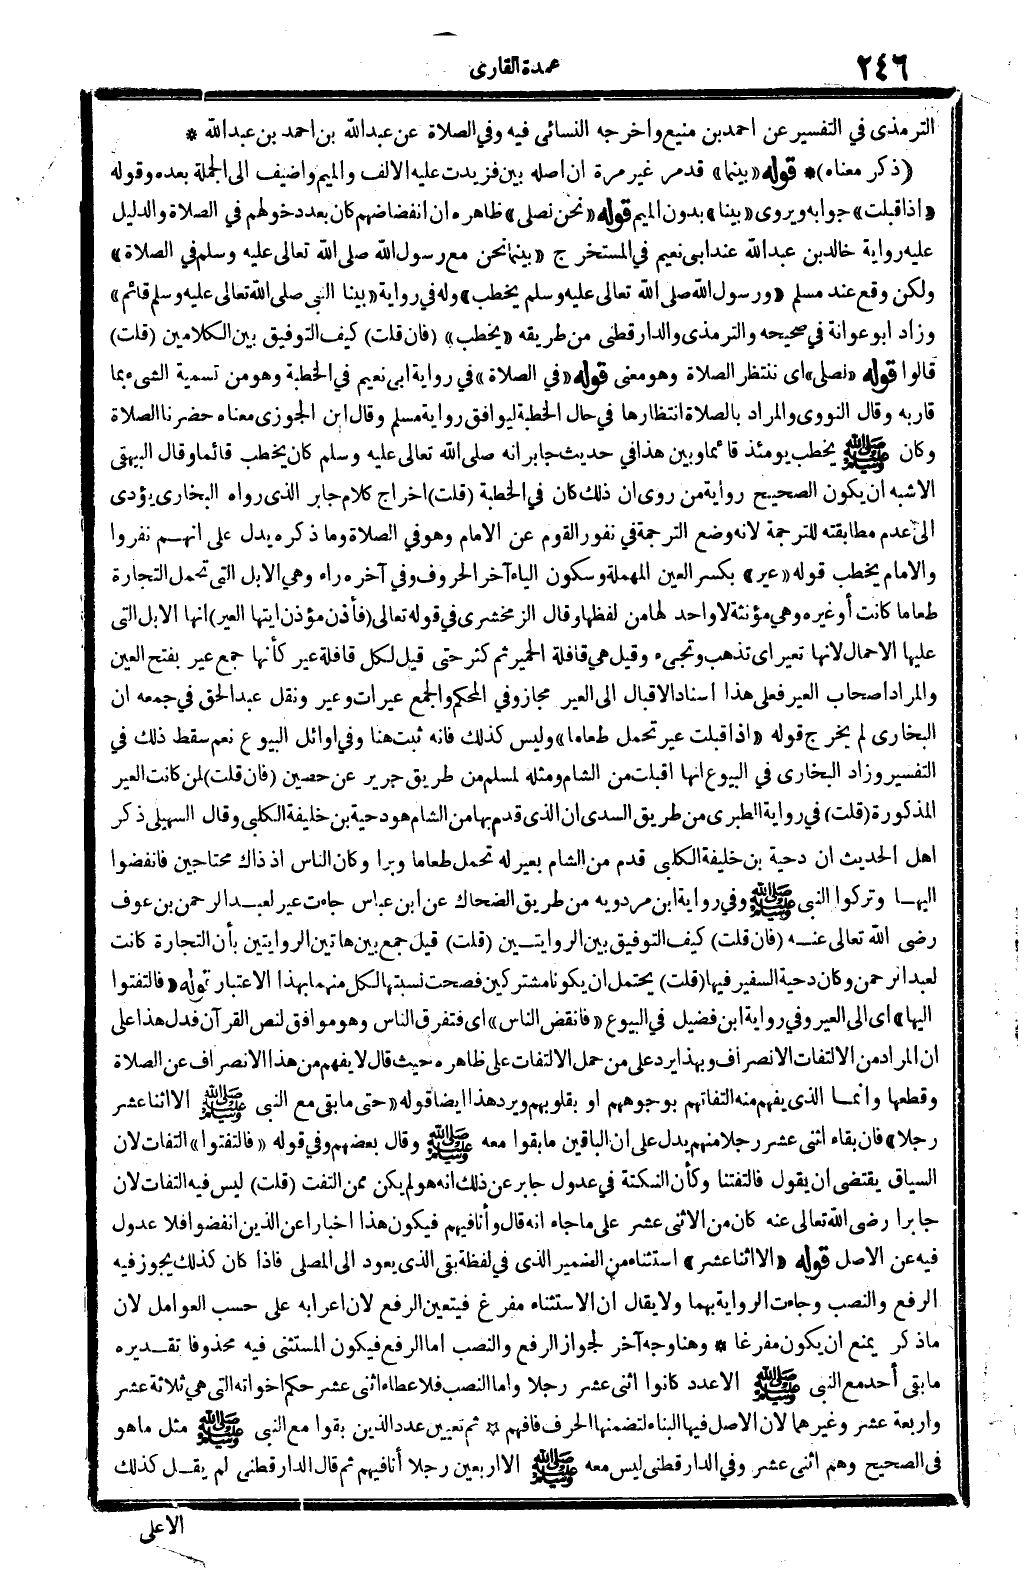 ٢٤٦
عمدة القارى
الترمذى في التفسير عن احمد بن منيع واخرجه النسائى فيه وفي الصلاة عن عبدالله بن احمد بن عبدالله *
(ذكر معناه) * قوله «بينما» قد مر غير مرة ان اصله بين فزيدت عليه الالف والميم واضيف الى الجملة بعده وقوله
«اذ اقبلت» جوابه ويروى «بينا» بدون الميم قوله «نحن نصلى» ظاهره ان انفضاضهم كان بعد دخولهم في الصلاة والدليل
عليه رواية خالد بن عبدالله عند ابى نعيم في المستخرج «بينما نحن مع رسول الله صلى الله تعالى عليه وسلم في الصلاة»
ولكن وقع عند مسلم «ورسول الله صلى الله تعالى عليه وسلم يخطب» وله في رواية «بينا النبى صلى الله تعالى عليه وسلم قائم»
وزاد ابو عوانة في صحيحه والترمذى والدارقطنى من طريقه «يخطب» (فان قلت) كيف التوفيق بين الكلامين (قلت)
قالوا قوله «نصلى» اى ننتظر الصلاة وهو معنى قوله «في الصلاة» في رواية ابى نعيم في الخطبة وهو من تسمية الشىء بما
قاربه وقال النووى والمراد بالصلاة انتظارها في حال الخطبة ليوافق رواية مسلم وقال ابن الجوزى معناه حضرنا الصلاة
وكان ﷺ يخطب يومئذ قائما وبين هذا في حديث جابر انه صلى الله تعالى عليه وسلم كان يخطب قائما وقال البيهقى
الاشبه ان يكون الصحيح رواية من روى ان ذلك كان في الخطبة (قلت) اخراج كلام جابر الذى رواه البخارى يؤدى
الى عدم مطابقته للترجمة لانه وضع الترجمة في نفور القوم عن الامام وهو في الصلاة وما ذكره يدل على انهم نفروا
والامام يخطب قوله «عير» بكسر العين المهملة وسكون الياء آخر الحروف وفي آخره راء وهي الابل التى تحمل التجارة
طعاما كانت أو غيره وهي مؤنثة لا واحد لها من لفظها وقال الزمخشرى في قوله تعالى (فأذن مؤذن ايتها العير) انها الابل التى
عليها الاحمال لانها تعير اى تذهب وتجىء وقيل هي قافلة الحمير ثم كثر حتى قيل لكل قافلة عير كأنها جمع عير بفتح العين
والمراد اصحاب العير فعلى هذا اسناد الاقبال الى العير مجاز وفي المحكم والجمع عيرات وعير ونقل عبد الحق في جمعه ان
البخارى لم يخرج قوله «اذ اقبلت عير تحمل طعاما» وليس كذلك فانه ثبت هنا وفي اوائل البيوع نعم سقط ذلك في
التفسير وزاد البخارى في البيوع انها اقبلت من الشام ومثله لمسلم من طريق جرير عن حصين (فان قلت) لمن كانت العير
المذكورة (قلت) في رواية الطبرى من طريق السدى ان الذى قدم بها من الشام هو دحية بن خليفة الكلبى وقال السهيلى ذكر
اهل الحديث ان دحية بن خليفة الكلبى قدم من الشام بعير له تحمل طعاما وبرا وكان الناس اذ ذاك محتاجين فانفضوا
اليها وتركوا النبى ﷺ وفي رواية ابن مردويه من طريق الضحاك عن ابن عباس جاءت عير لعبد الرحمن بن عوف
رضى الله تعالى عنه (فان قلت) كيف التوفيق بين الروايتين (قلت) قيل جمع بين هاتين الروايتين بأن التجارة كانت
لعبد الرحمن وكان دحية السفير فيها (قلت) يحتمل ان يكونا مشتركين فصحت نسبتها لكل منهما بهذا الاعتبار قوله «فالتفتوا
اليها» اى الى العير وفي رواية ابن فضيل في البيوع «فانفض الناس» اى فتفرق الناس وهو موافق لنص القرآن فدل هذا على
ان المراد من الالتفات الانصراف وبهذا يرد على من حمل الالتفات على ظاهره حيث قال لا يفهم من هذا الانصراف عن الصلاة
وقطعها وانما الذى يفهم منه التفاتهم بوجوههم او بقلوبهم ويرد هذا ايضا قوله «حتى ما بقى مع النبى ﷺ الا اثنا عشر
رجلا» فان بقاء اثنى عشر رجلا منهم يدل على ان الباقين ما بقوا معه ﷺ وقال بعضهم وفي قوله «فالتفتوا» التفات لان
السياق يقتضى ان يقول فالتفتنا وكأن النكتة في عدول جابر عن ذلك انه هو لم يكن ممن التفت (قلت) ليس فيه التفات لان
جابرا رضى الله تعالى عنه كان من الاثنى عشر على ما جاء انه قال وأنا فيهم فيكون هذا اخبارا عن الذين انفضوا فلا عدول
فيه عن الاصل قوله «الا اثنا عشر» استثناء من الضمير الذى في لفظة بقى الذى يعود الى المصلى فاذا كان كذلك يجوز فيه
الرفع والنصب وجاءت الرواية بهما ولا يقال ان الاستثناء مفرغ فيتعين الرفع لان اعرابه على حسب العوامل لان
ماذكر يمنع ان يكون مفرغا * وهنا وجه آخر لجواز الرفع والنصب اما الرفع فيكون المستثنى فيه محذوفا تقديره
ما بقى أحد مع النبى ﷺ الا عدد كانوا اثنى عشر رجلا واما النصب فلا عطاء اثنى عشر حكم اخواته التى هي ثلاثة عشر
واربعة عشر وغيرهما لان الاصل فيها البناء لتضمنها الحرف فافهم * ثم تعيين عدد الذين بقوا مع النبى ﷺ مثل ما هو
في الصحيح وهم اثنى عشر وفي الدارقطنى ليس معه ﷺ الا اربعين رجلا أنا فيهم ثم قال الدارقطنى لم يقل كذلك
الا على